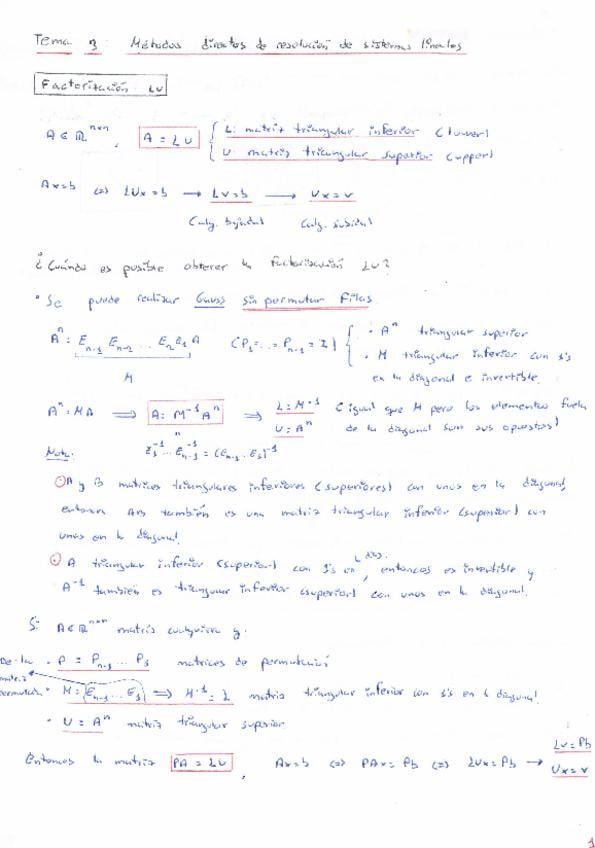 Tema 3: Métodos directos de resolución de sistemas lineales
Factorización LU
A ∈ ℝⁿˣⁿ, A = LU { L: matriz triangular inferior (lower)
U: matriz triangular superior (upper)
Ax=b ⇔ LUx=b → Lv=b → Ux=v
(alg. bajada) (alg. subida)
¿Cuándo es posible obtener la factorización LU?
• Se puede realizar Gauss sin permutar filas.
Aⁿ = Eₙ₋₁ Eₙ₋₂ ... E₂E₁A (P₁=...=Pₙ₋₁=I) { · Aⁿ triangular superior
M
· M triangular inferior con 1's
en la diagonal e invertible.
Aⁿ=MA ⟹ A=M⁻¹Aⁿ ⟹ L=M⁻¹ (igual que M pero los elementos fuera
U=Aⁿ de la diagonal son sus opuestos)
Nota: E₁⁻¹...Eₙ₋₁⁻¹=(Eₙ₋₁..E₁)⁻¹
A y B matrices triangulares inferiores (superiores) con unos en la diagonal,
entonces AB también es una matriz triangular inferior (superior) con
unos en la diagonal.
A triangular inferior (superior) con 1's en la diag., entonces es invertible y
A⁻¹ también es triangular inferior (superior) con unos en la diagonal.
Si A∈ℝⁿˣⁿ matriz cualquiera y:
· P = Pₙ₋₁ ... P₁ matrices de permutación
De la
matriz
permutada
• M = Eₙ₋₁ ... E₁ ⟹ M⁻¹ = L matriz triangular inferior con 1's en la diagonal.
• U = Aⁿ matriz triangular superior.
Entonces la matriz PA = LU Ax=b ⇔ PAx=Pb ⇔ LUx=Pb → Lv=Pb
Ux=v
1